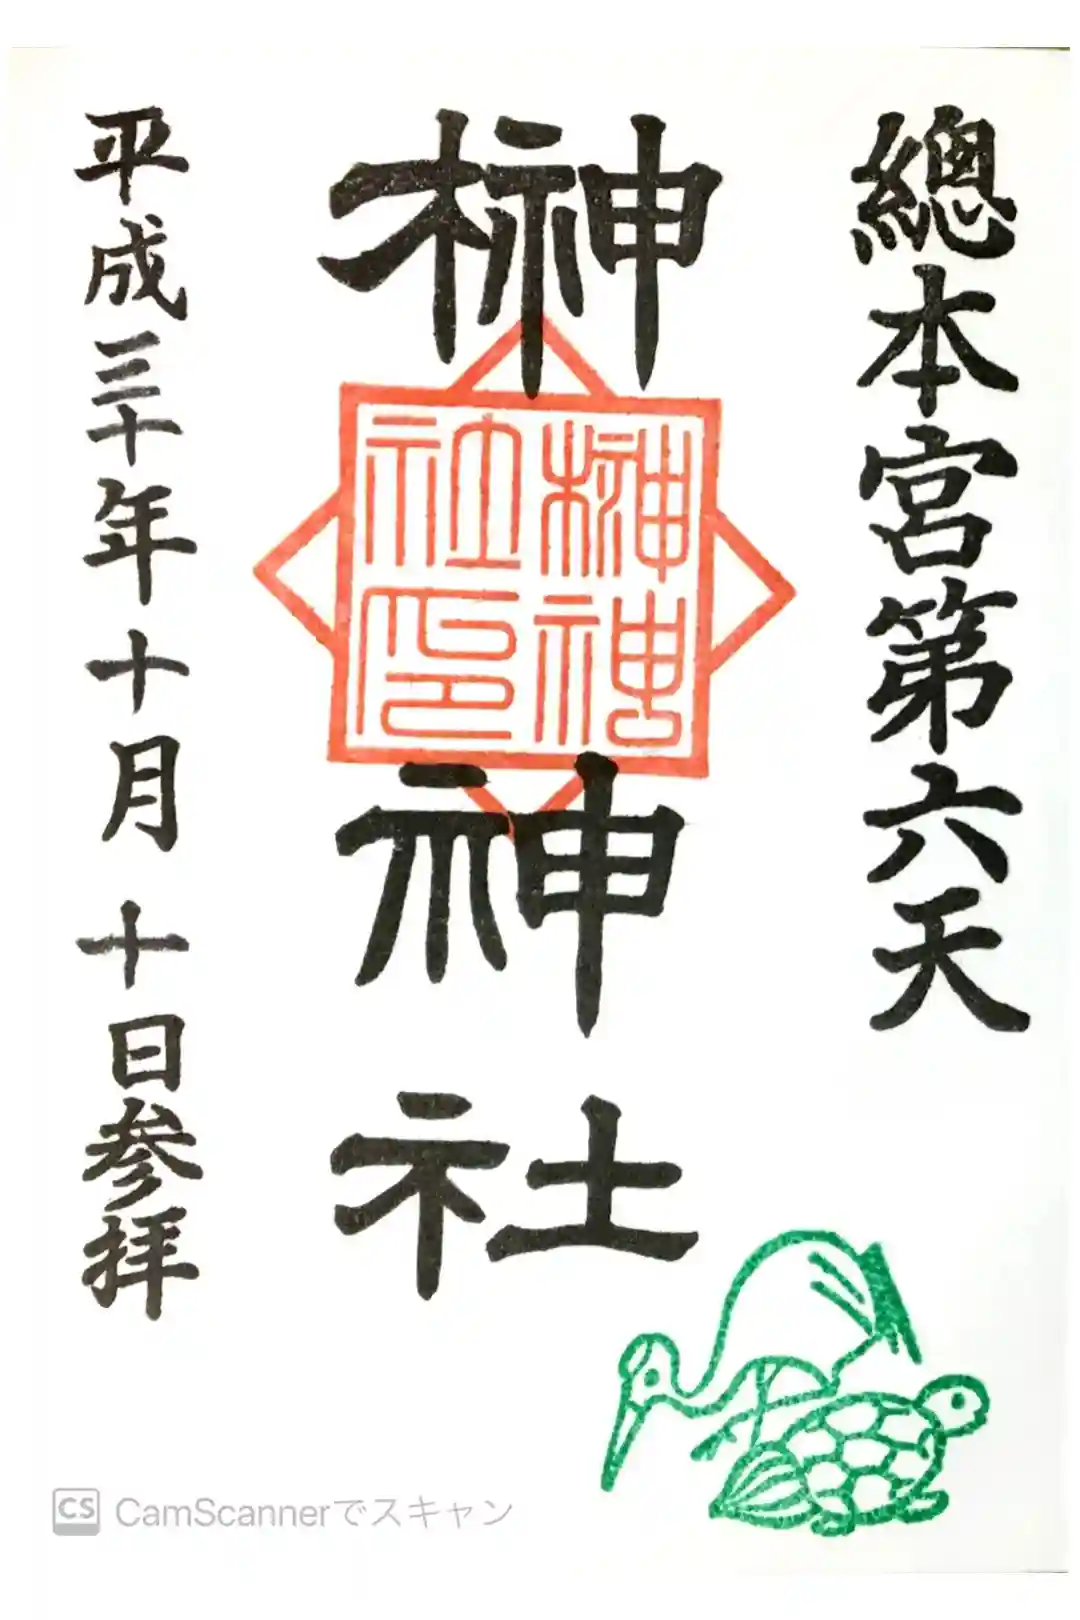 總本宮第六天
榊神社
榊神社印
平成三十年十月十日参拝
CS CamScannerでスキャン